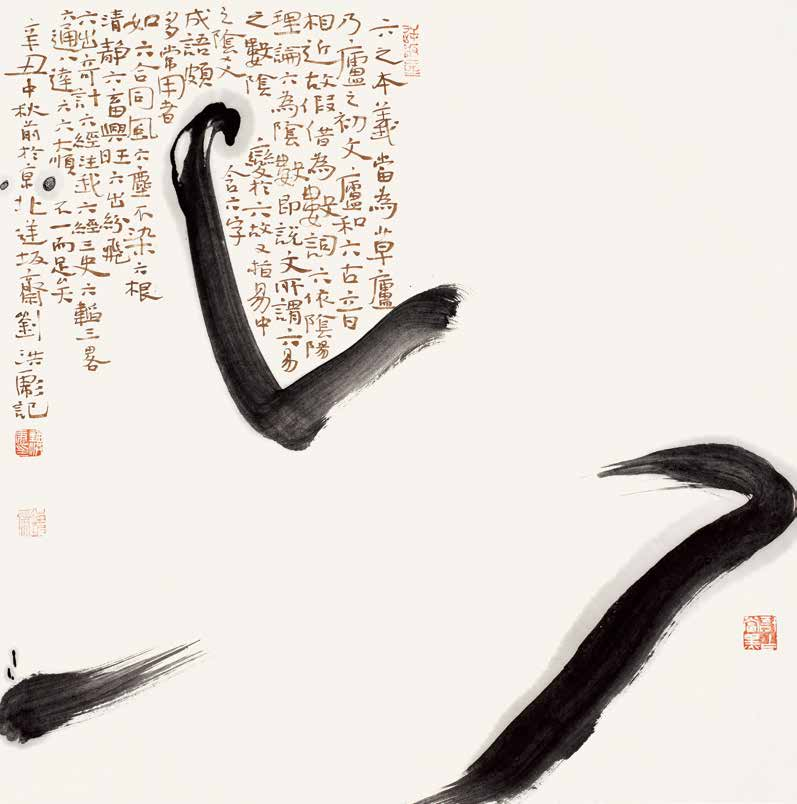 六之本義當為草廬
乃廬之初文廬和六古音
相近故假借為數詞六依陰陽
理論六為陰數即說文所謂六易
之數陰變於六故又指易中
之陰文含六字
成語頗
多常用者
如六合同風六塵不染六根
清靜六畜興旺六出紛飛
六出奇計六經注我六經三史六韜三畧
六通八達六六大順不一而足矣
辛丑中秋前於京北坂齋劉洪彪記